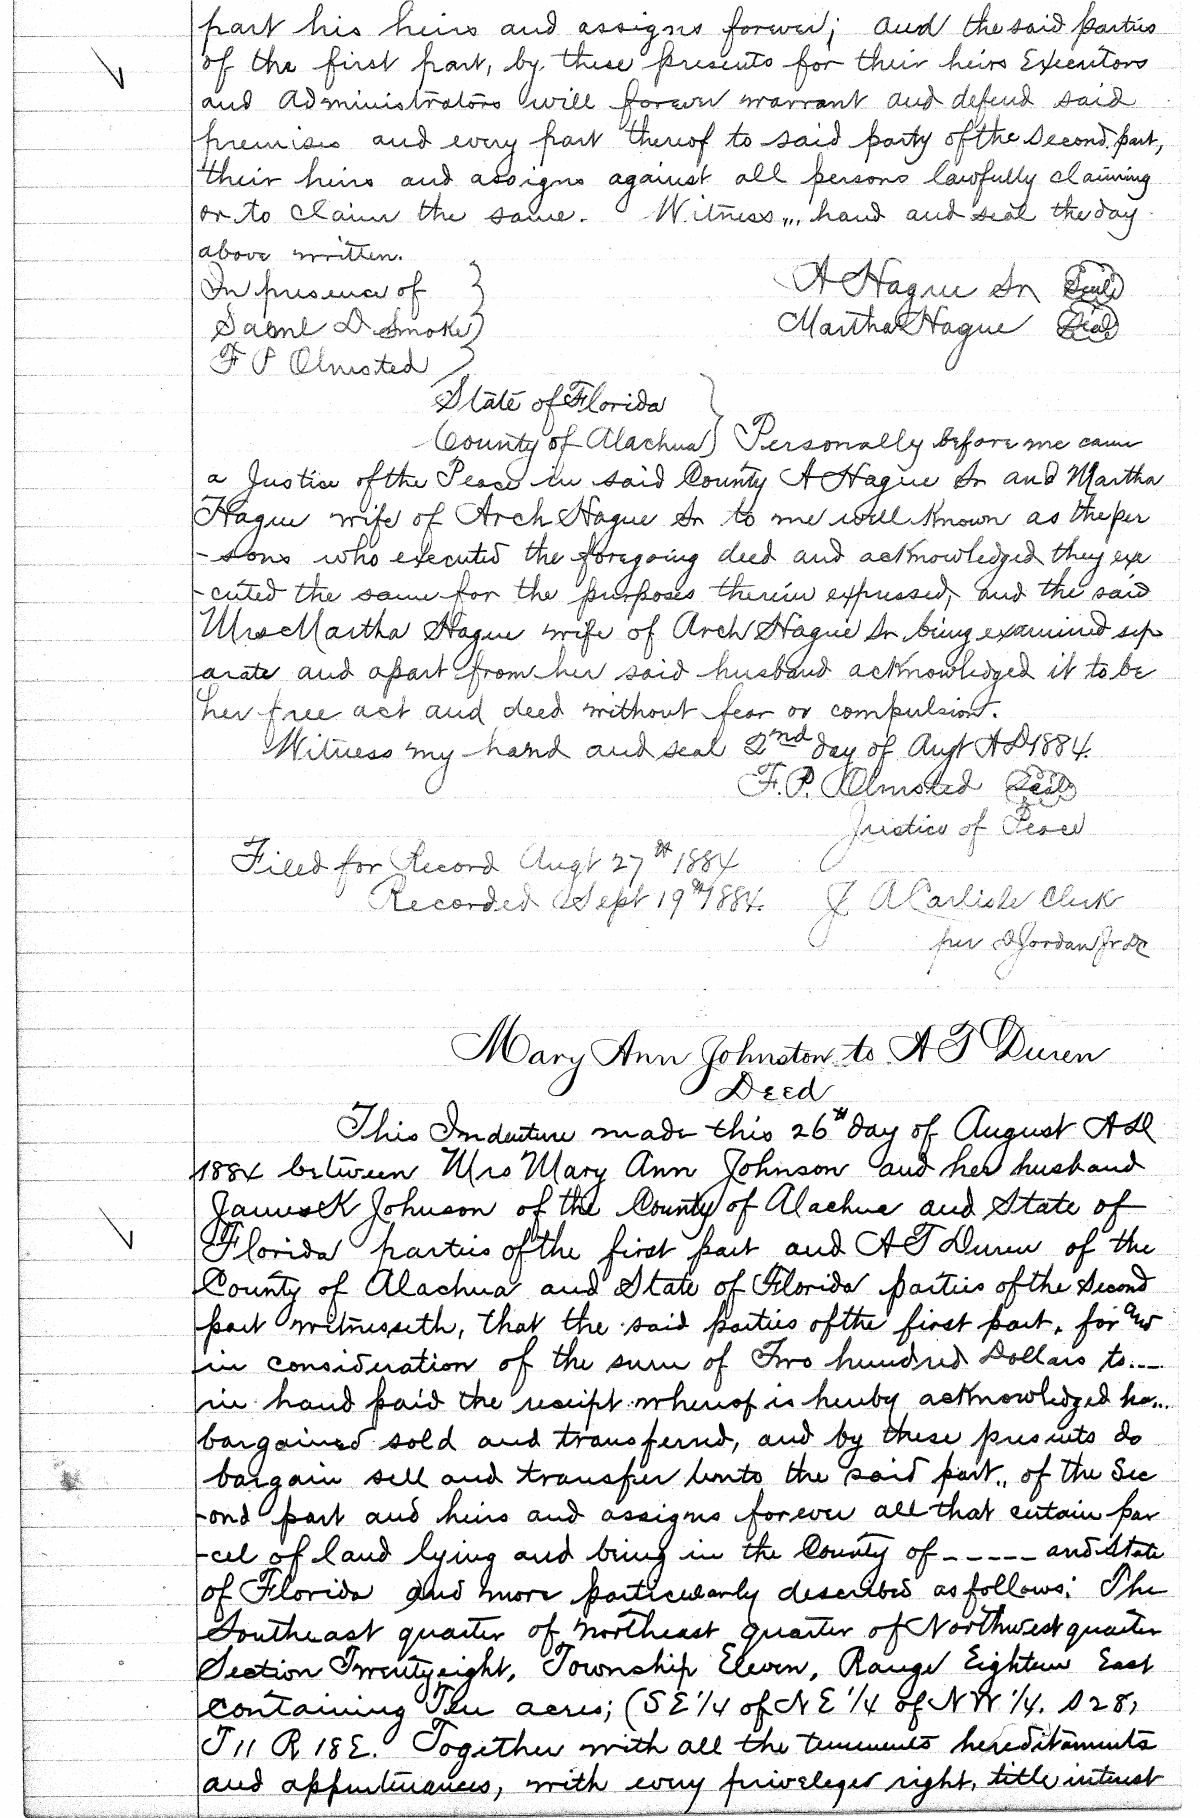 part his heirs and assigns forever; and the said parties
of the first part, by these presents for their heirs Executors
and Administrators will forever warrant and defend said
premises and every part thereof to said party of the second part,
their heirs and assigns against all persons lawfully claiming
or to claim the same. Witness,,, hand and seal the day
above written.
In presence of } A Hague Sr Seal
Saml D Smoke } Martha Hague Seal
F P Olmsted }
State of Florida }
County of Alachua } Personally before me came
a Justice of the Peace in said County A Hague Sr and Martha
Hague wife of Arch Hague Sr to me well known as the per
-sons who executed the foregoing deed and acknowledged they exe
-cuted the same for the purposes therein expressed, and the said
Mrs Martha Hague wife of Arch Hague Sr being examined sep
arate and apart from her said husband acknowledged it to be
her free act and deed without fear or compulsion.
Witness my hand and seal 2nd day of Augt AD 1884.
F. P. Olmsted Seal
Justice of Peace
Filed for Record Augt 27th 1884
Recorded Sept 19th 1884. J A Carlisle Clerk
per D Jordan Jr DC
Mary Ann Johnston to A T Duren
Deed
This Indenture made this 26th day of August AD
1884 between Mrs Mary Ann Johnson and her husband
James K Johnson of the County of Alachua and State of
Florida parties of the first part and A T Duren of the
County of Alachua and State of Florida parties of the second
part witnesseth, that the said parties of the first part, for and
in consideration of the sum of Two hundred Dollars to....
in hand paid the receipt whereof is hereby acknowledged ha...
bargained sold and transferred, and by these presents do
bargain sell and transfer unto the said part.. of the Sec
-ond part and heirs and assigns forever all that certain par
-cel of land lying and being in the County of ----- and State
of Florida and more particularly described as follows: The
Southeast quarter of northeast quarter of Northwest quarter
Section Twenty eight, Township Eleven, Range Eighteen East
containing Ten acres; (SE 1/4 of NE 1/4 of NW 1/4. S 28,
T 11 R 18 E. Together with all the tenements hereditaments
and appurtenances, with every priveleges right, title interest